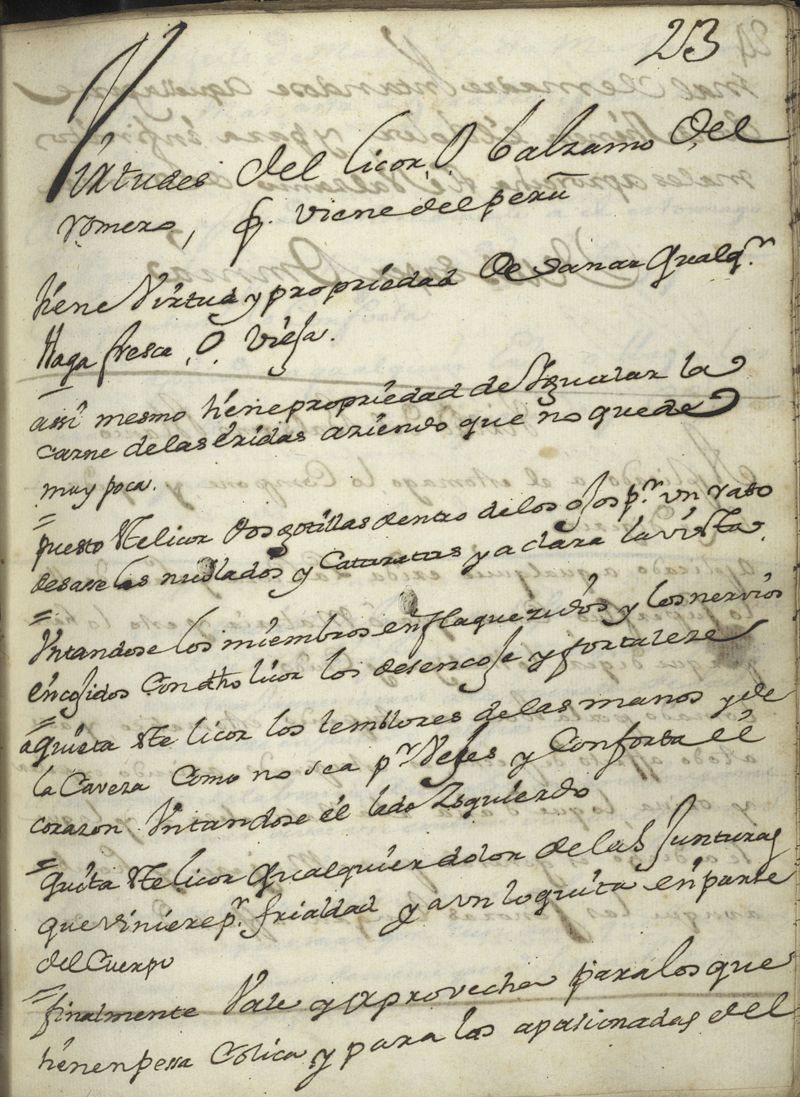 23
Virtudes del licor, O, balsamo del
romero, q. viene del perù
tiene Virtud y propriedad de sanar qualq.r
llaga fresca, O, vieja.
assi mesmo tiene propriedad de Ygualar la
carne delas eridas aziendo que no quede
muy poca.
puesto Ste licor dos gotillas dentro delos ojos p.r un rato
desaze los nublados y Cattarattas y aclara la vista.
Vntandose los miembros enflaquezidos y los nervios
encojidos Con dho licor los desencoje y fortaleze
aquieta Ste licor los temblores de las manos y de
la Caveza Como no sea p.r Vejes y Conforta el
corazon Vntandose el lado Izquierdo
quita Ste licor qualquier dolor de las Junturas
que viniere p.r frialdad y aun lo quita en parte
del Cuerpo
finalmente Vale y aprovecha para los que
tienen Colica y para los apasionados del